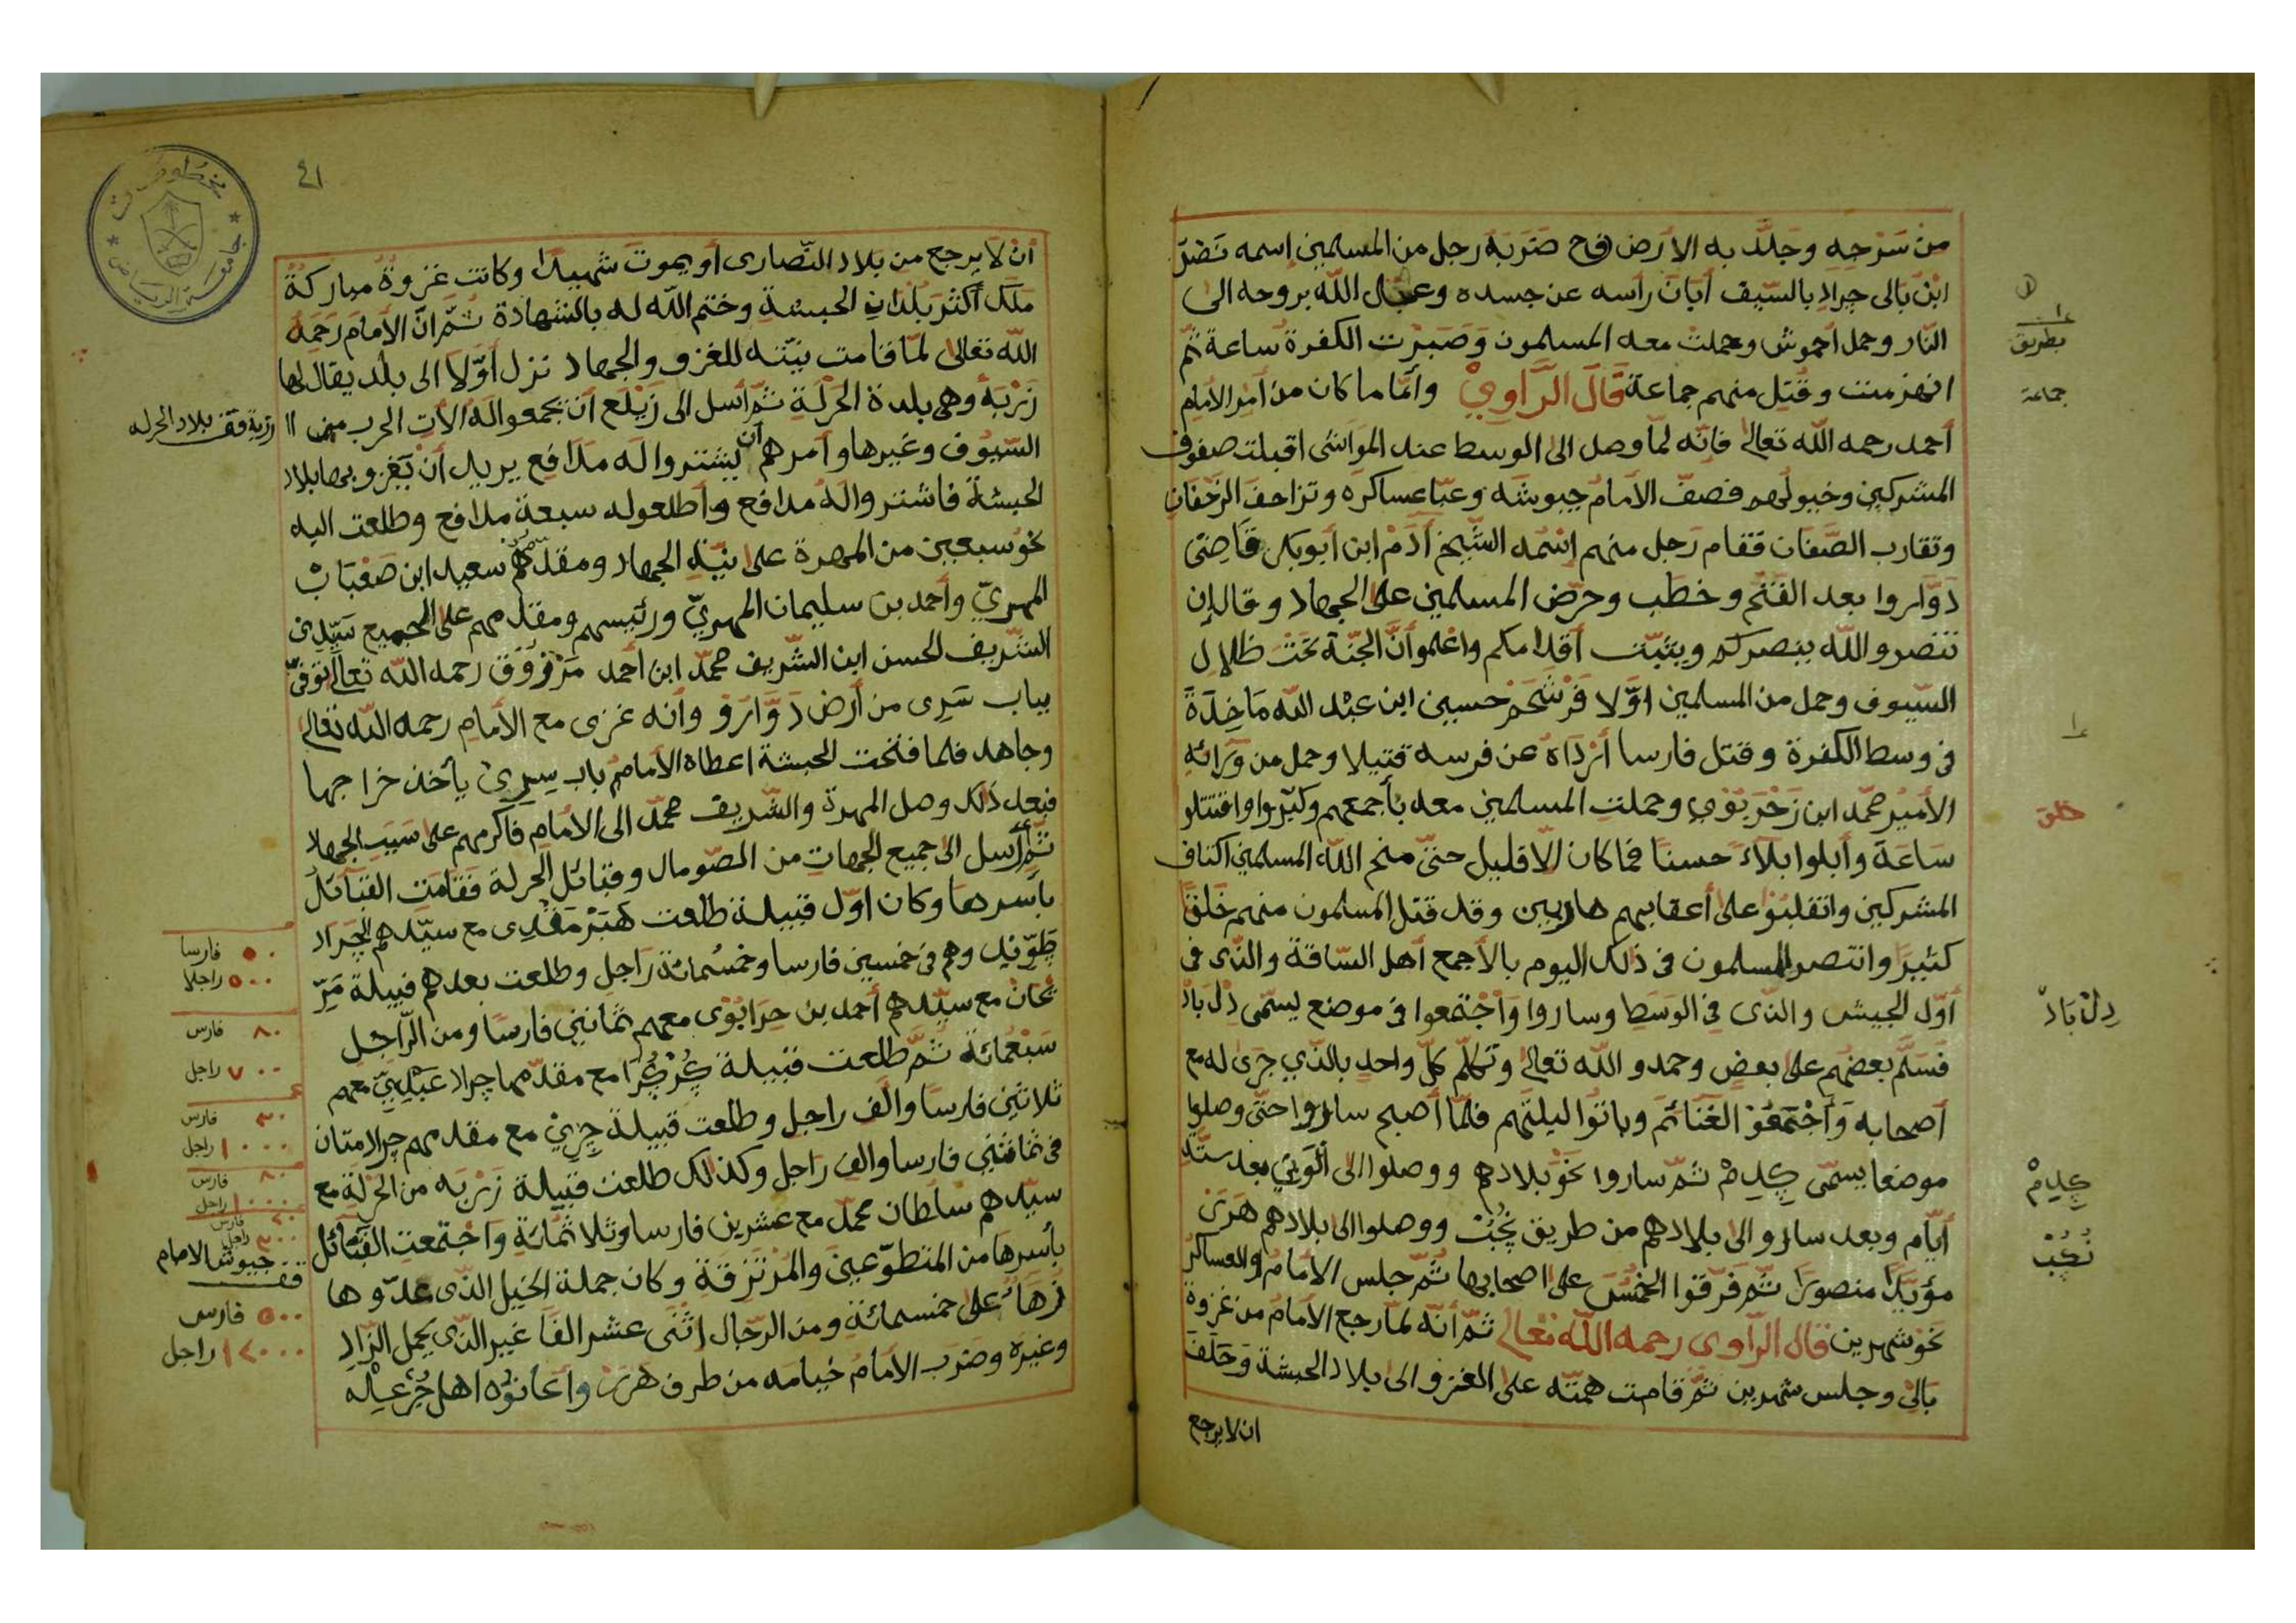 من سَرْجِهِ وجَلَّد به الارض فح ضَرَبَهُ رجل من المسلمين إسمه نَصْر
ابْن بَالى جِراد بالسّيف أبَانَ رأسه عن جسده وعجّل اللّه بروحه الى
النّار وحمل أحموش وحملتْ معه المسلمون وَصَبَرْت الكفرة ساعة ثمّ
انهزمت وقُتِل منهم جماعة قَالَ الرَّاوِيْ وأمّا ما كان من أمر الأمام
أحمد رحمه اللّه تعالى فانّه لمّا وصل الى الوسط عند المَوَاشى اقبلت صفوف
المشركين وخيولهم فصفّ الأمامُ جيوشَه وعبّا عساكره وتزاحفَ الزّحفان
وتقارب الصّفان فقام رَجل منهم إسْمه الشّيخ أدَمْ ابن أبوبكر قاضِى
دَوَّاروا بعد الفَتح وخطَب وحرّض المسلمين على الجهاد وقال إن
تنصرو اللّه ينصركم ويثبّت أقدامكم واعْلموا أنّ الجنّة تَحْتَ ظلال
السّيوف وحمل من المسلمين اوّلا فَرْشَحَمْ حسين ابن عبْد اللّه مَاخِدَةَ
فى وسط الكفرة وقتل فارسا أرْدَاهُ عن فرسه قتيلا وحمل من وَرَائِهِ
الأميْر محمّد ابن زَحْرَبُوي وحملت المسلمين معه بأجمعهم وكبّروا واقتتلو
سَاعَة وأبلوا بلاءً حسنًا فما كان الّا قليل حتىّ منح اللّه المسلمين اكتاف
المشركين وانقلبُوْ على أعقابهم هاربين وقد قتل المسلمون منهم خَلقًا
كثيرَ وانتصر المسلمون فى ذلك اليوم بالأجمع أهل السّاقة والذّى فى
أوّل الجيش والذّى فى الوَسَطِ وساروا وَاجْتمعوا فى موضع يسمّى دِلْ بَادْ
فَسَلّم بعضهم على بعض وحمدو اللّه تعالى وتكلّم كلّ واحد بالذّي جَرَى له مع
أصحابه وَأَجْتَمَعُوْ الغَنَائمَ وباتوا ليلتهم فلمّا أصبح ساروا حتىّ وصلوا
موضعا يسمّى كِدِمْ ثمّ ساروا نَحْوَ بلادهم ووصلوا الى أَلْوَيْن بعد ستّة
أيّام وبعد سارو الى بلادهم من طريق نُجُبْ ووصلوا الى بلادهم هَرَرْ
مؤيّدًا منصورًا ثمّ فَرّقوا الخُمُسَ على اصحابها ثمّ جلس الأمامُ والعساكر
نَحْوَ شهرين قال الرّاوى رحمه اللّه تعالى ثمّ أنّه لمّا رجع الأمام من غزوة
بَالِى وجلس شهرين ثمّ قامت همّته على الغزو الى بلاد الحبشة وَحَلَفَ
ان لا يرجع
بطريق
جماعة
خلق
دِلْ بَادْ
كِدِمْ
نُجُبْ
٤١
أنْ لَا يرجع من بَلاد النّصارى أو يموتَ شهيدًا وكانت غزوةً مباركةً
ملَك أكثر بُلدانِ الحبشة وختم اللّه له بالشّهادة ثمّ انّ الأمامَ رَحمَه
اللّه تعالى لمّا قامت نيّته للغزو والجهاد نزل أوّلا الى بلد يقال لها
زَرْبَه وهى بلدة الحَرْلَةِ ثمّ أسل الى زَيْلَع أن يجمعوا لهُ الأت الحرب من
السّيوف وغيرها وأمرهم أن يشتروا له مدَافع يريد أنْ يَغزو بها بلاد
الحبشة فاشتروا لهُ مدافع وأطلعوله سبعة مدافع وطلعت اليه
نحو سبعين من المهرة على نيّة الجهاد ومقدّمهم سعيد ابن صَعْبَان
المهريّ وأحمد بن سليمان المهريّ ورئيسهم ومقدمهم على الجميع سَيّدى
الشّريف الحسن ابن الشّريف محمّد ابن أحمد مَرْزُوقٍ رحمه اللّه تعالى توفىّ
بباب سَرِى من أرض دَوَّارَوْ وأنه غزى مع الأمام رحمه اللّه تعالى
وجاهد فلما فتحت الحبشة اعطاه الأمامُ باب سِرِىْ يأخذ خراجها
فبعد ذلك وصل المهرة والشّريف محمّد الى الامام فاكرمهم على سَبب الجهاد
ثمّ أرسل الى جميع الجهات من الصّومال وقبائل الحرلة فقامَت القبَائلُ
بأسرها وكان اوّل قبيلة طلعت هَبَرْ مَقْدِى مع سيّدهم الجَراد
طَوّيْد وهم فى خمسين فارسا وخمسُمائة رَاجل وطلعت بعدهم قبيلة مَرّ
يْحَان مع سيّدهم أحمد بن حِرَابُوْى معهم ثمانين فارسًا ومن الرّاجل
سَبْعُمائة ثمّ طلعت قبيلة كُرْكُرَا مع مقدّمها جراد عَبْدِىّ معهم
ثلاثين فارسًا والف راجل وطلعت قبيلة جِرِيْ مع مقدمهم جراد متان
فى ثمانين فارسا والف رَاجل وكذلك طلعت قبيلة زَرْبَه من الحَرْلَةِ مع
سيّدهم سلطان محمّد مع عشرين فارسا وثلاثمائةٍ وَاجْتمعت القبَائل
بأسرها من المتطوّعين والمرْتزقة وكان جملة الخيل الذّى عدّوها
زهَاءُ على خمسمائةٍ ومن الرّجال إثْنَى عشر الفًا غير الذّى يحمل الزّاد
وغيره وضرب الأمامُ خيامه من طرف هَرَرْ وأعَانُوْه اهل
قف بلاد الحرله
٥٠ فارسا
٥٠٠ راجلا
٨٠ فارس
٧٠٠ راجل
٣٠ فارس
١٠٠٠ راجل
٨٠ فارس
١٠٠٠ راجل
٢٠ فارس
٣٠٠ راجل
جيوش الامام
قف
٥٠٠ فارس
١٢٠٠٠ راجل
مخطوطات
جامعة الرياض